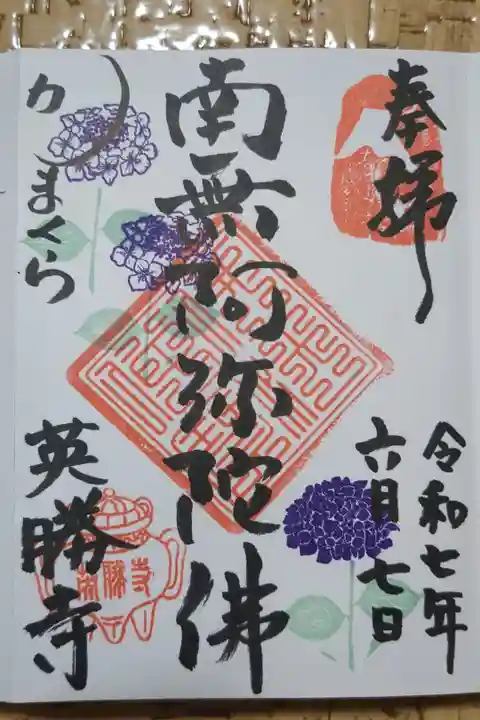 奉拝
令和七年
六月七日
南無阿弥陀佛
かまくら
英勝寺